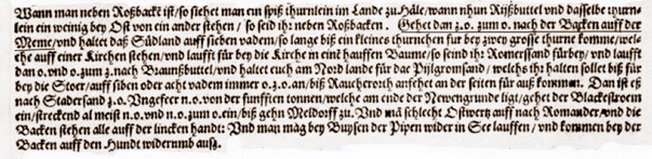 Wann man neben Roßbackē ist/so siehet man ein spiß thurnlein im Lande zu Hále/wann nhun Rißbuttel vnd dasselbe thurn-
lein ein weinig bey Ost von ein ander stehen / so seid ihr neben Roßbacken. Gehet dan z.o. zum o. nach der Backen auff der
Meme/vnd haltet daß Südland auff sieben vadem/so lange biß ein kleines thurnchen fur bey zwey grosse thurne komme/wel-
che auff einer Kirchen stehen/vnd laufft für bey die Kirche m einē hauffen Baume/so seind ihr Romerssand fürbey/vnd laufft
dan o.vnd o.zum z.nach Braunßbuttel/vnd haltet euch am Nord lande für das Pijlgromsand / welchs ihr halten sollet biß für
bey die Stoer/auff siben oder acht vadem immer o.z.o.an/biß Raucheroth ansehet an der seiten für auß kommen. Dan ist eß
nach Stadersand z.o. Vngefeer n.o.von der funfften tonnen/welche am ende der Newengrunde ligt/gehet der Blackestroem
ein/streckend al meist n.o.vnd n.o.zum o.ein/biß gehn Meldorff zu. Vnd mā schlecht Ostwertz auff nach Romander/vnd die
Backen stehen alle auff der lincken handt: Vnd man mag bey Buysen der Pipen wider in See lauffen / vnd kommen bey der
Backen auff den Hundt widerumb auß.